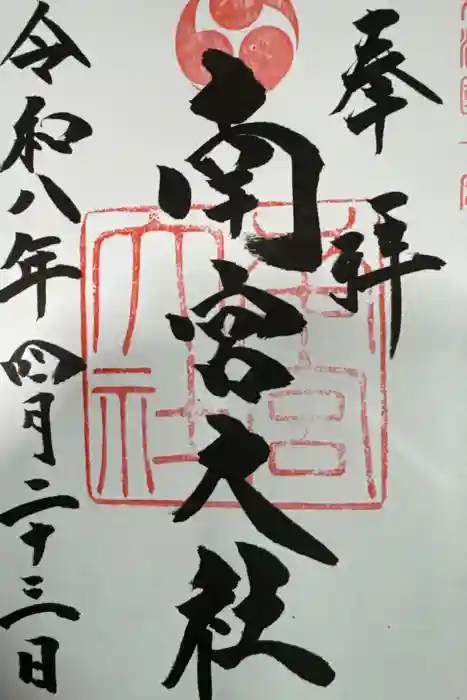 奉拝
南宮大社
令和八年四月二十三日
南宮大社